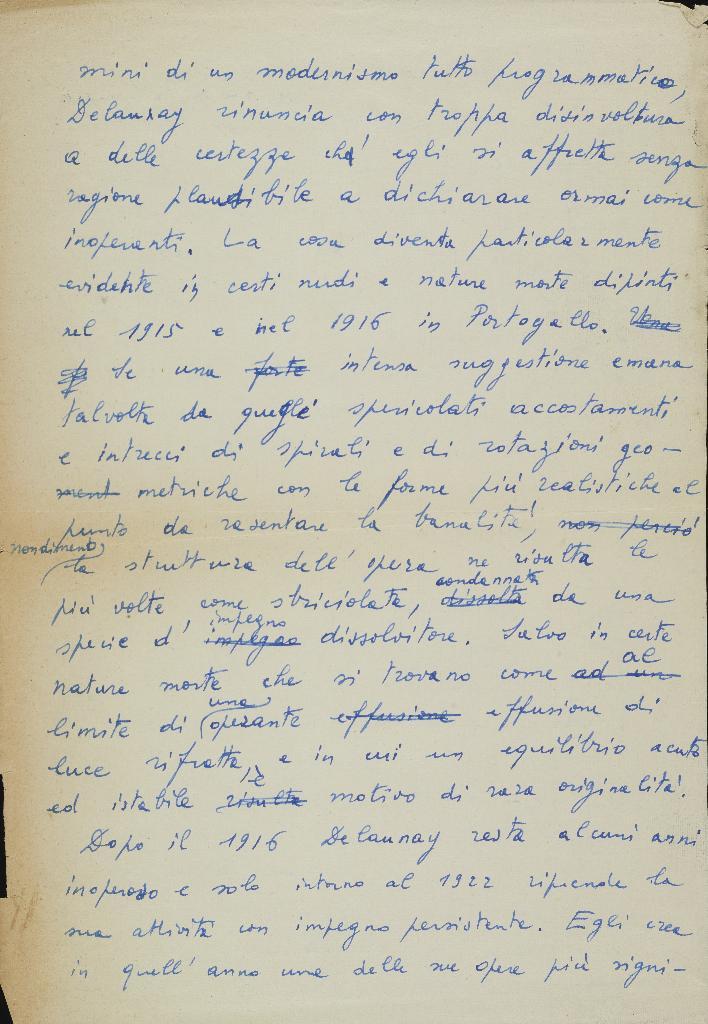 mini di un modernismo tutto programmatico,
Delaunay rinuncia con troppa disinvoltura
a delle certezze che egli si affretta senza
ragione plausibile a dichiarare ormai come
inoperanti. La cosa diventa particolarmente
evidente in certi nudi e nature morte dipinti
nel 1915 e nel 1916 in Portogallo.
Se una forte intensa suggestione emana
talvolta da quegli spericolati accostamenti
e intrecci di spirali e di rotazioni geo-
ment metriche con le forme più realistiche al
punto da rasentare la banalità, non perciò
nondimeno
la struttura dell'opera ne risulta le
condannata
più volte, come striciolata, dissolta da una
impegno
specie d'impegno dissolvitore. Salvo in certe
nature morte che si trovano come ad un al
una
limite di operante effusione effusione di
luce rifratta, e in cui un equilibrio acuto
è
ed istabile risulta motivo di rara originalità.
Dopo il 1916 Delaunay resta alcuni anni
inoperoso e solo intorno al 1922 riprende la
sua attività con impegno persistente. Egli crea
in quell'anno una delle sue opere più signi-